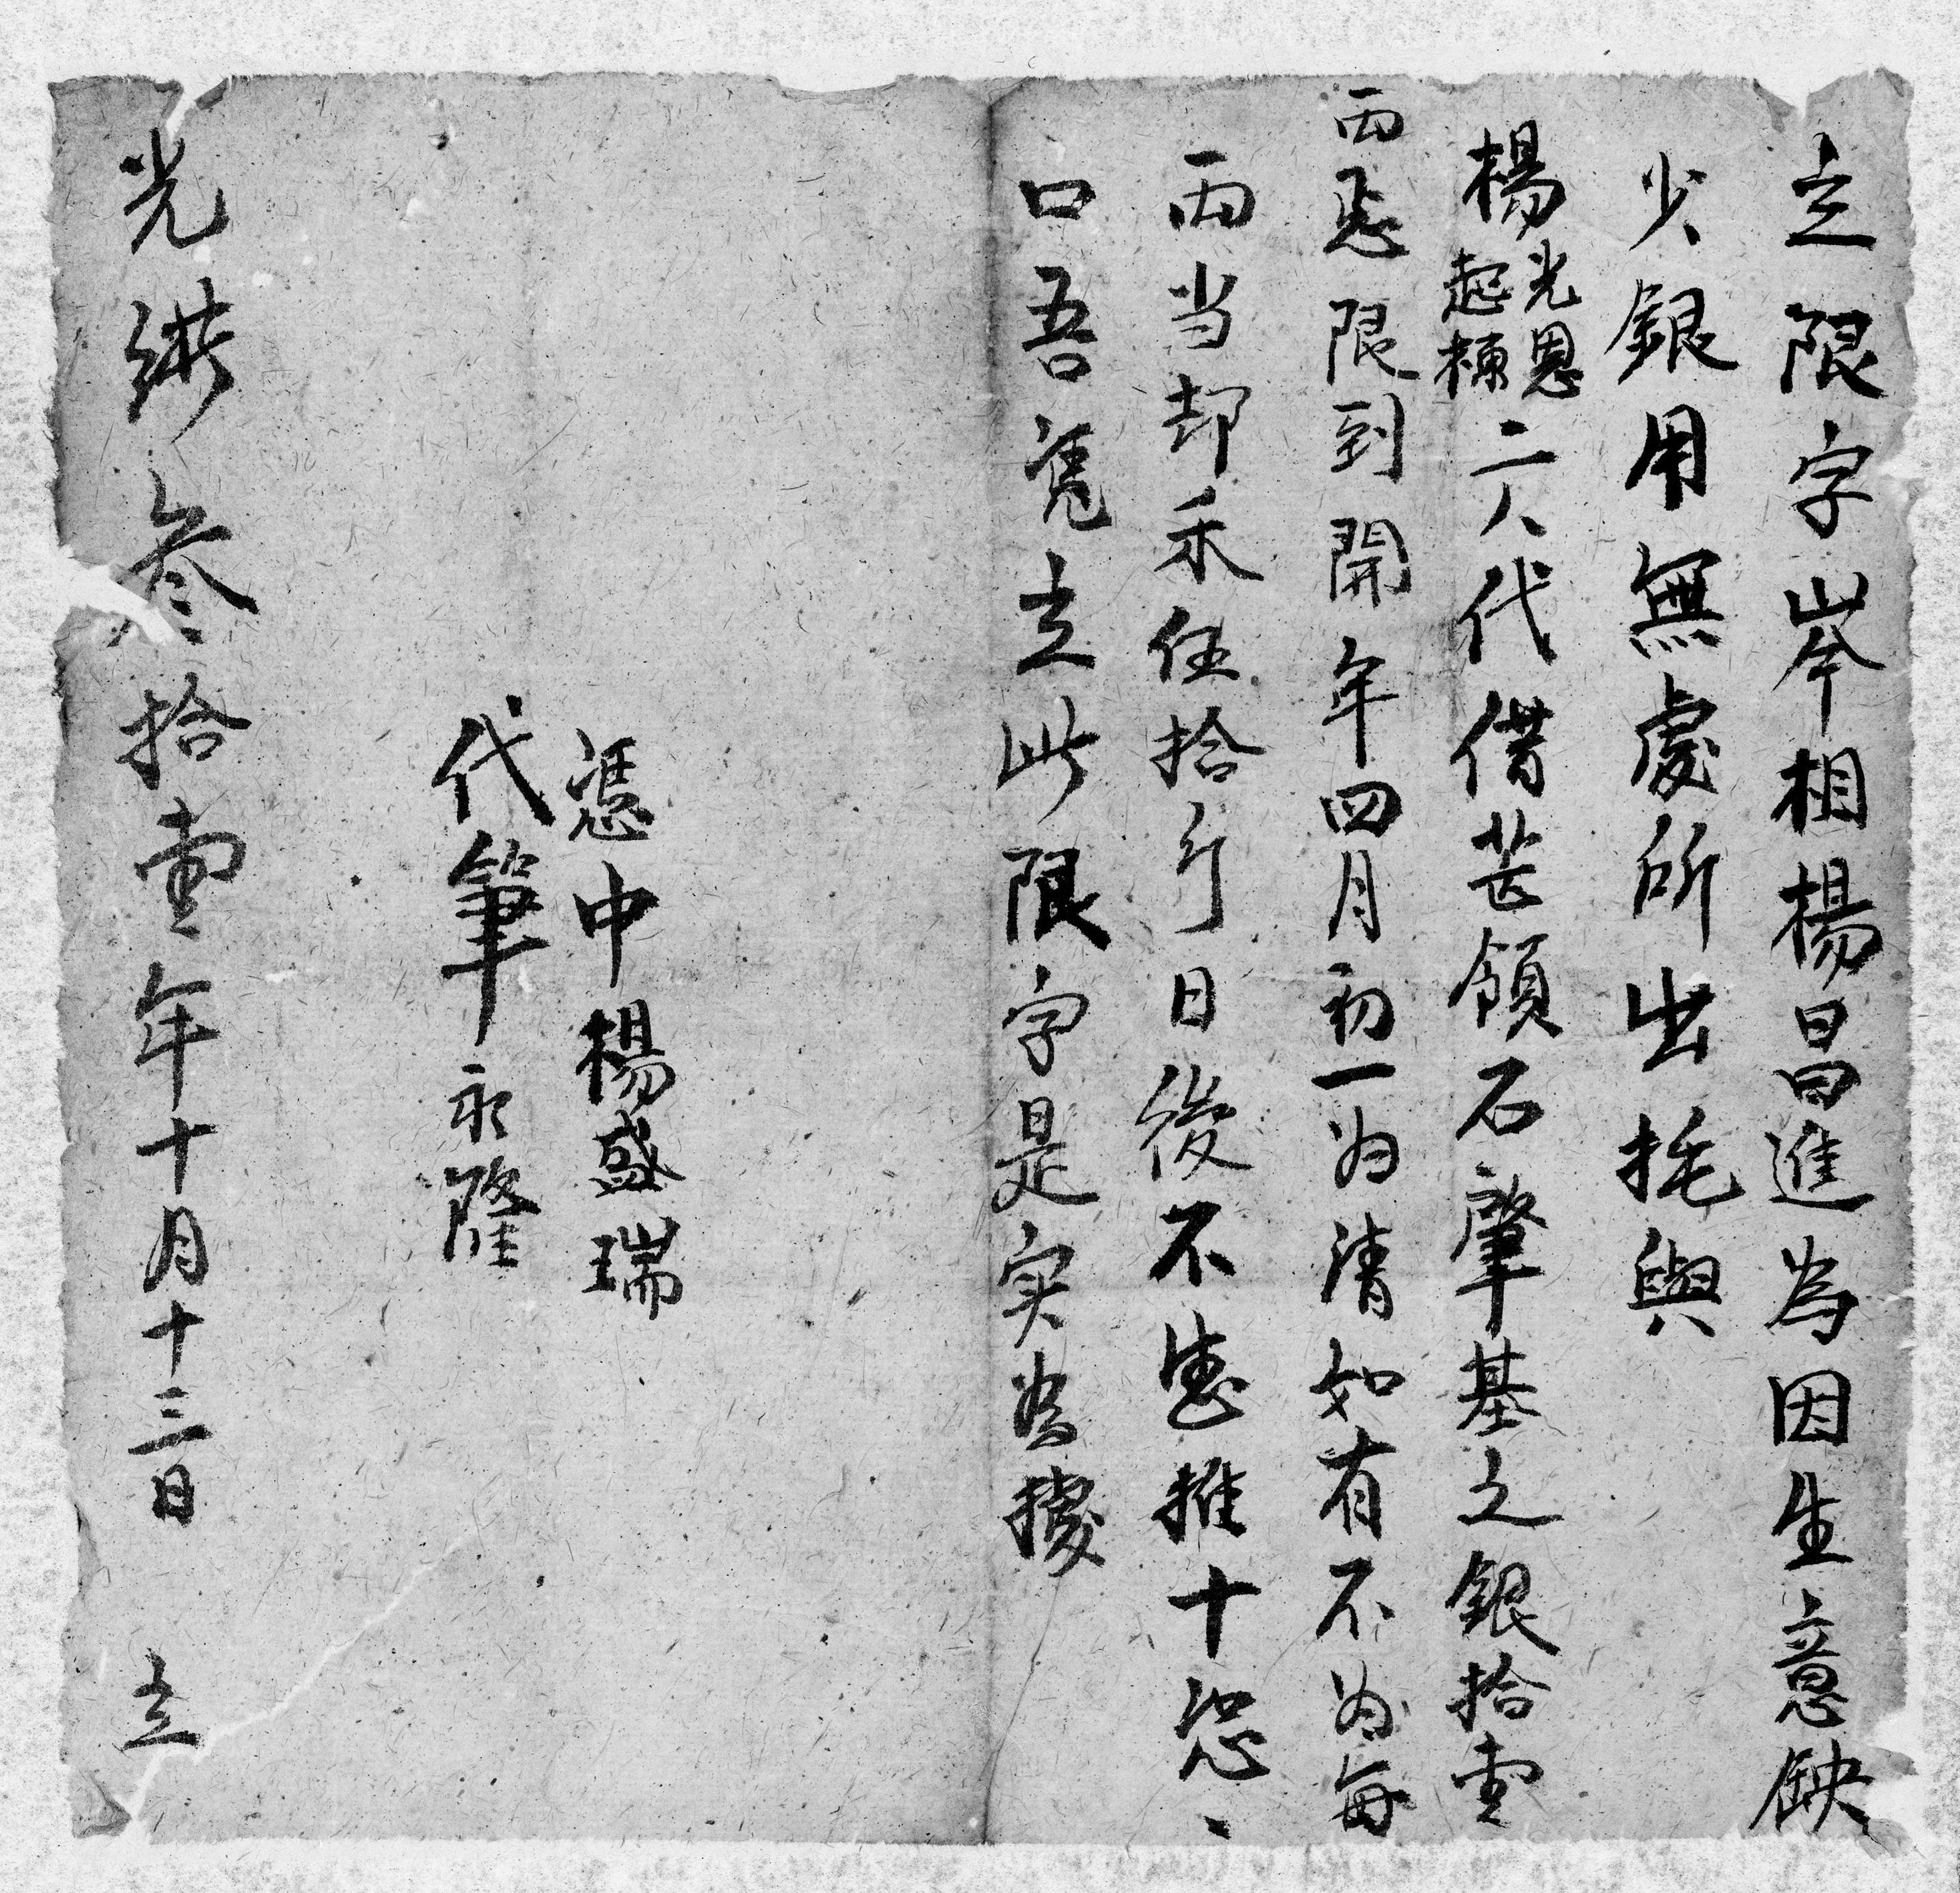 立限字岑相楊昌進為因生意缺
少銀用無處所出托與
楊光恩起標二人代借芒領石肇基之銀拾壹
両忌限到開年四月初一为清如有不为每
両当却禾伍拾斤日後不悪推十恐、
口吾凭立此限字是实为據
憑中楊盛瑞
代筆永隆
光緒叁拾壹年十月十三日 立